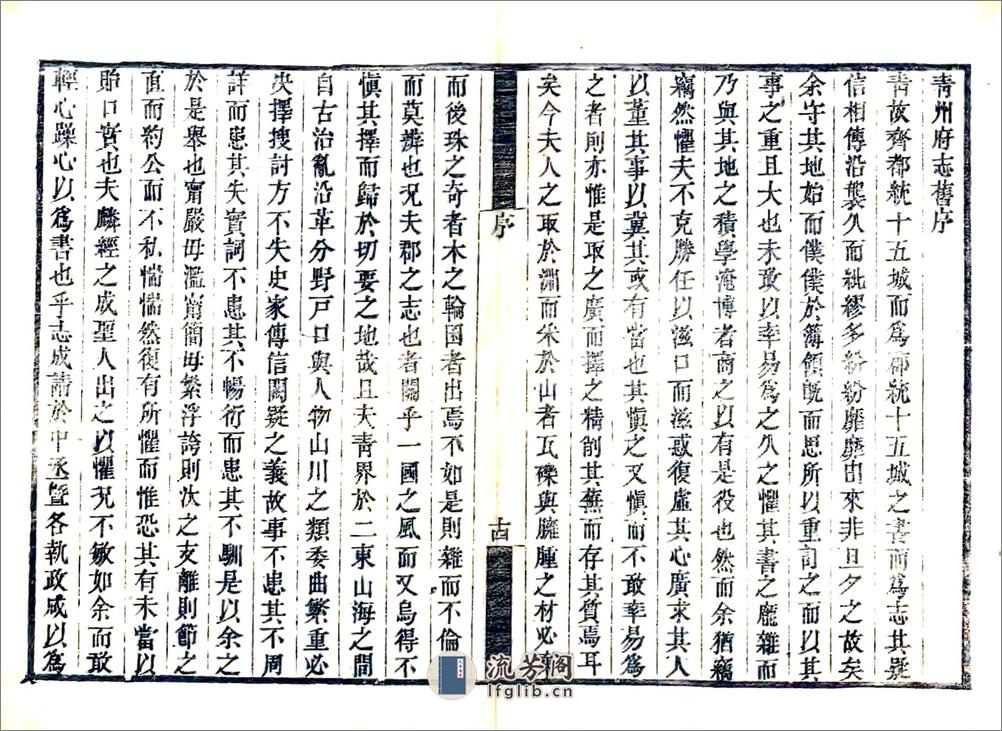 青州府志舊序
青故齊郡統十五城而爲郡統十五城之書而爲志其疑
信相傳沿襲久而紕繆多紛紛靡靡由來非旦夕之故矣
余守其地始而僕僕於簿領旣而思所以重訂之而以其
事之重且大也未敢以幸易爲之久之懼其書之龐雜而
乃與其地之積學淹博者商之以有是役也然而余猶竊
竊然懼夫不克勝任以滋口而滋惑復虛其心廣求其人
以董其事以冀其或有當也其愼之又愼而不敢幸易爲
之者則亦惟是取之廣而擇之精削其蕪而存其質焉耳
矣今夫人之取於淵而采於山者瓦礫與臃腫之材必
序
古
而後珠之奇者木之輪囷者出焉不如是則雜而不倫
而莫辨也況夫郡之志也者關乎一國之風而又烏得不
愼其擇而歸於切要之地哉且夫靑界於二東山海之間
自古治亂沿革分野戸口與人物山川之類委曲繁重必
央擇搜討方不失史家傳信闕疑之義故事不患其不周
詳而患其失實詞不患其不暢衍而患其不馴是以余之
於是舉也甯嚴毋濫甯簡毋繁浮誇則汰之支離則節之
直而約公而不私惴惴然復有所懼而惟恐其有未當以
貽口實也夫麟經之成聖人出之以懼況不敏如余而敢
輕心躁心以爲書也乎志成請於中丞暨各執政咸以爲
流芳阁
lfglib.cn